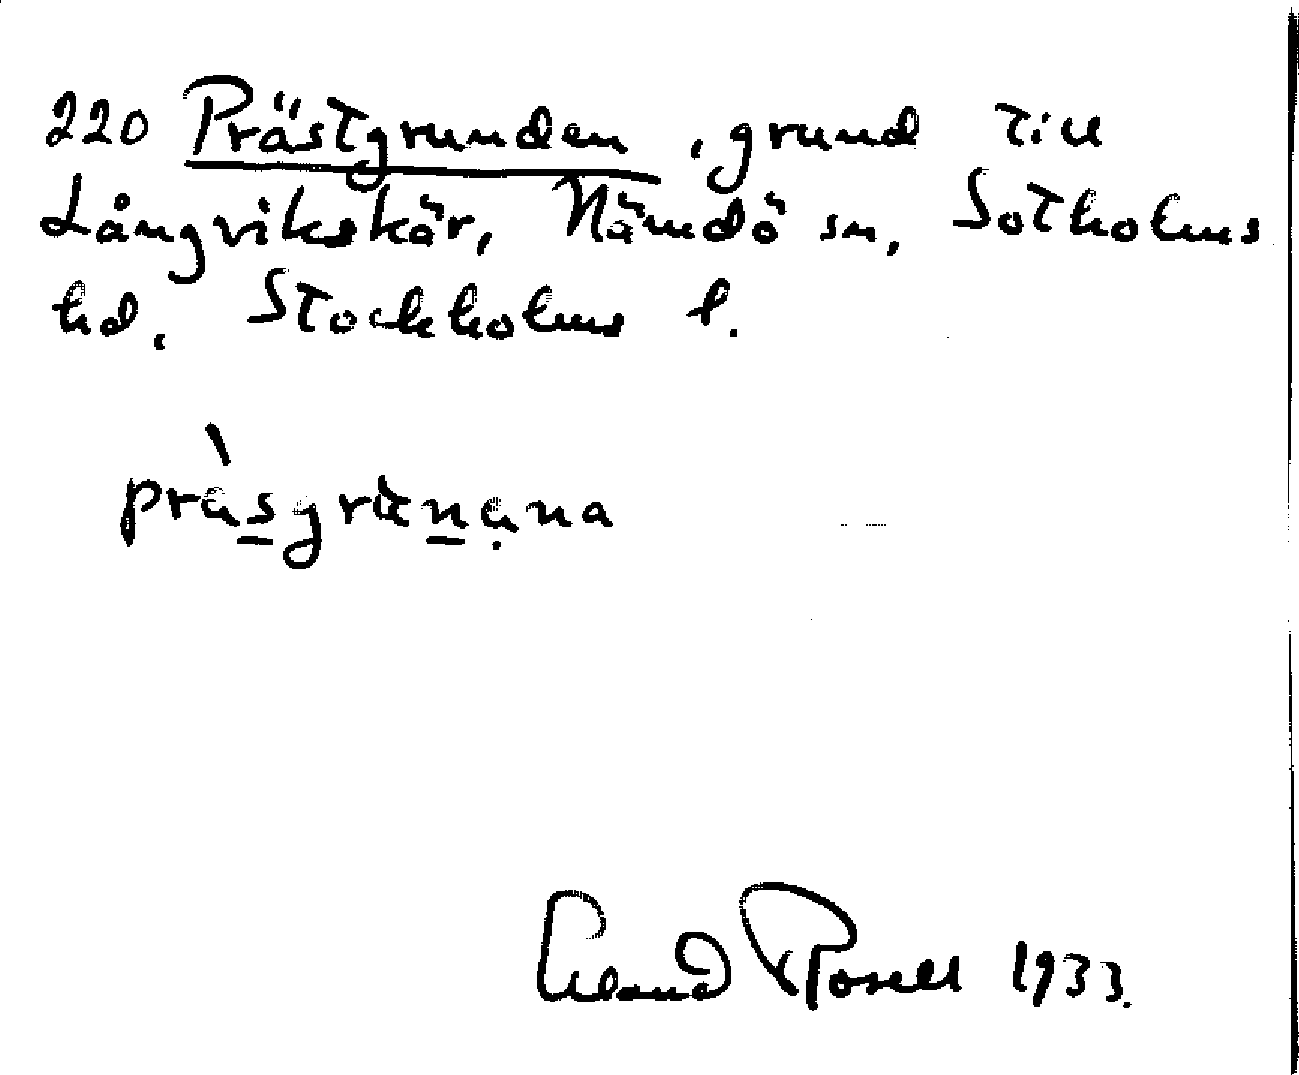 220 Prästgrunden, grund till
Långvikskär, Nämdö sn, Sotholms
hd. Stockholms l.
Rosell 1933.